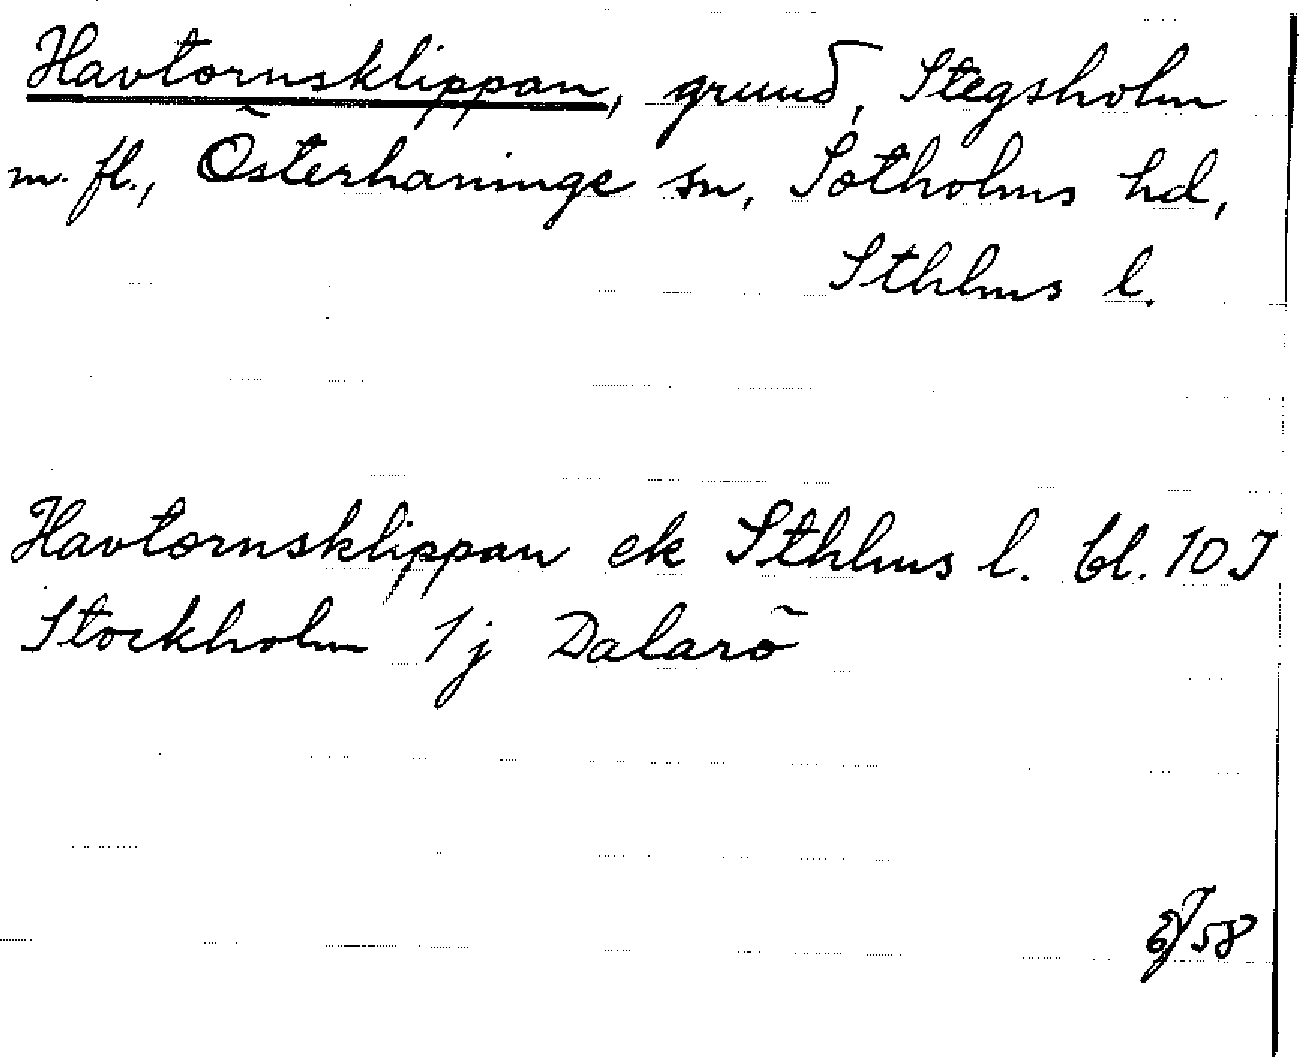 Havtornsklippan, grund, Stegsholm
m. fl., Österhaninge sn, Sotholms hd,
Sthlms l.
Havtornsklippan ek Sthlms l. bl. 10 J
Stockholm 1j Dalarö
58